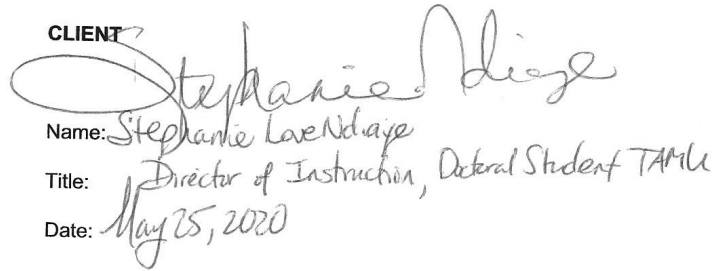 CLIENT
Stephanie Ndiaye
Name: Stephanie Love Ndiaye
Title: Director of Instruction, Doctoral Student TAMU
Date: May 25, 2020